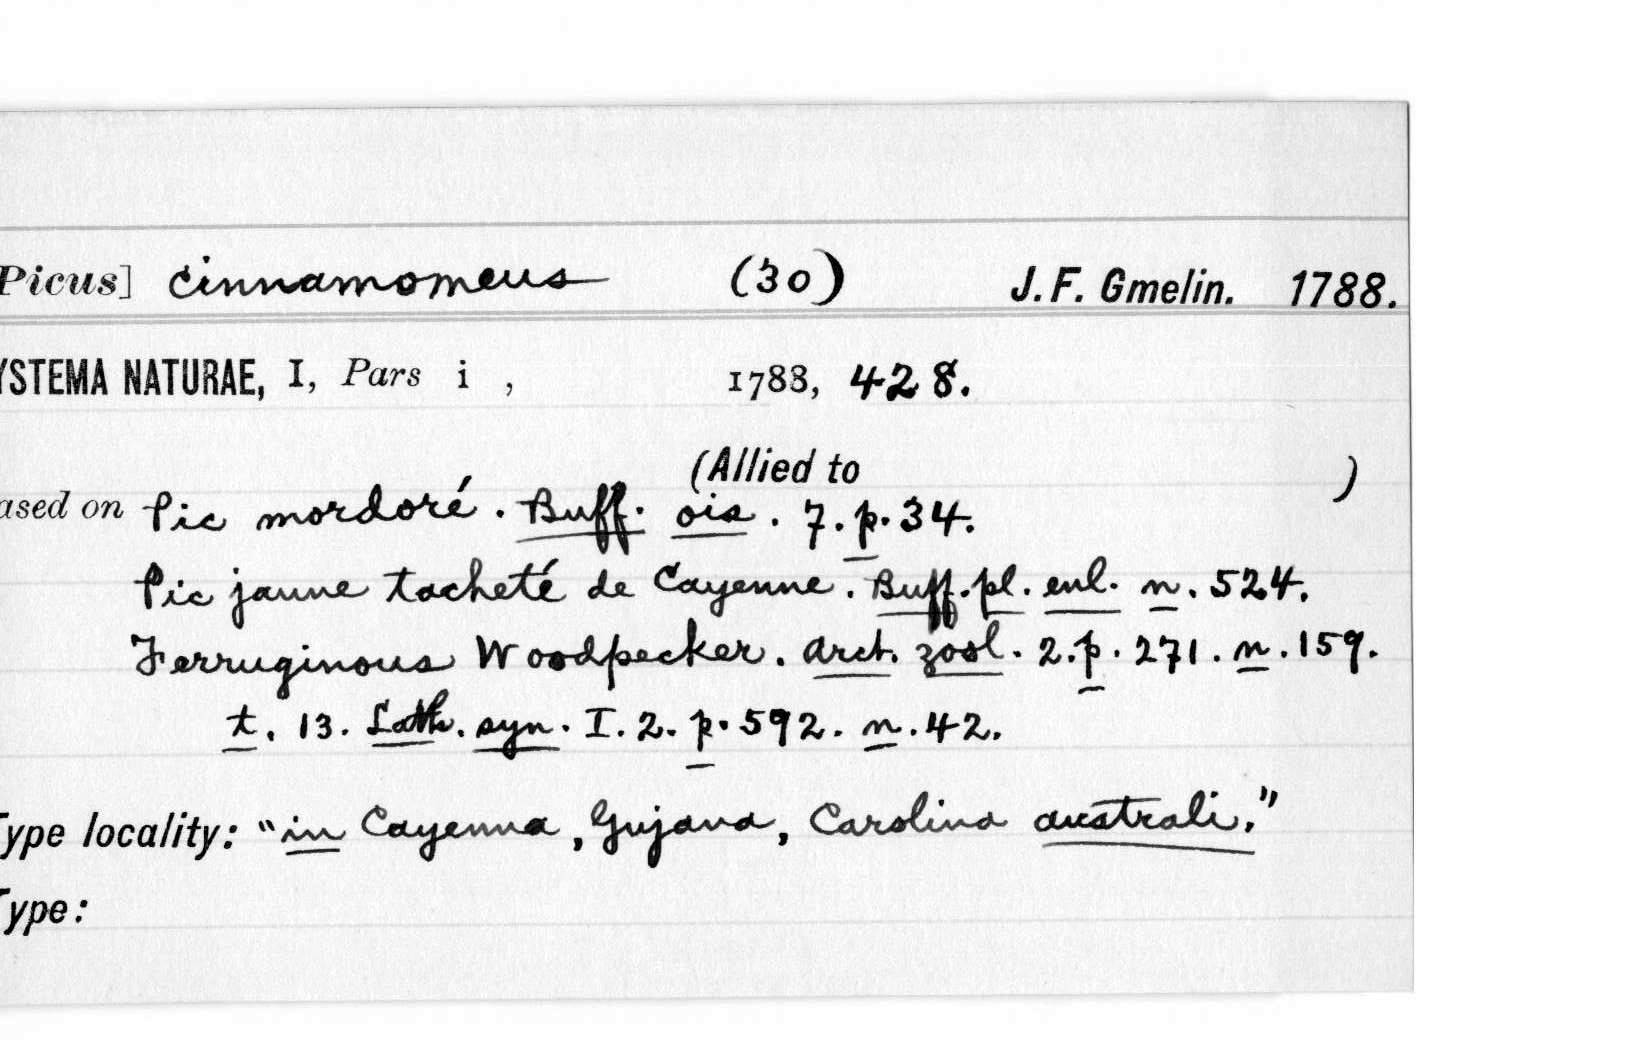 Picus] cinnamomeus (30) J. F. Gmelin. 1788.
YSTEMA NATURAE, I, Pars i , 1788, 428.
(Allied to )
ased on Pic mordoré. Buff. ois. 7. p. 34.
Pic jaune tacheté de Cayenne. Buff. pl. enl. n. 524.
Ferruginous Woodpecker. arct. zool. 2. p. 271. n. 159.
t. 13. Lath. syn. I. 2. p. 592. n. 42.
Type locality: "in Cayenna, Gujana, Carolina australi."
Type: